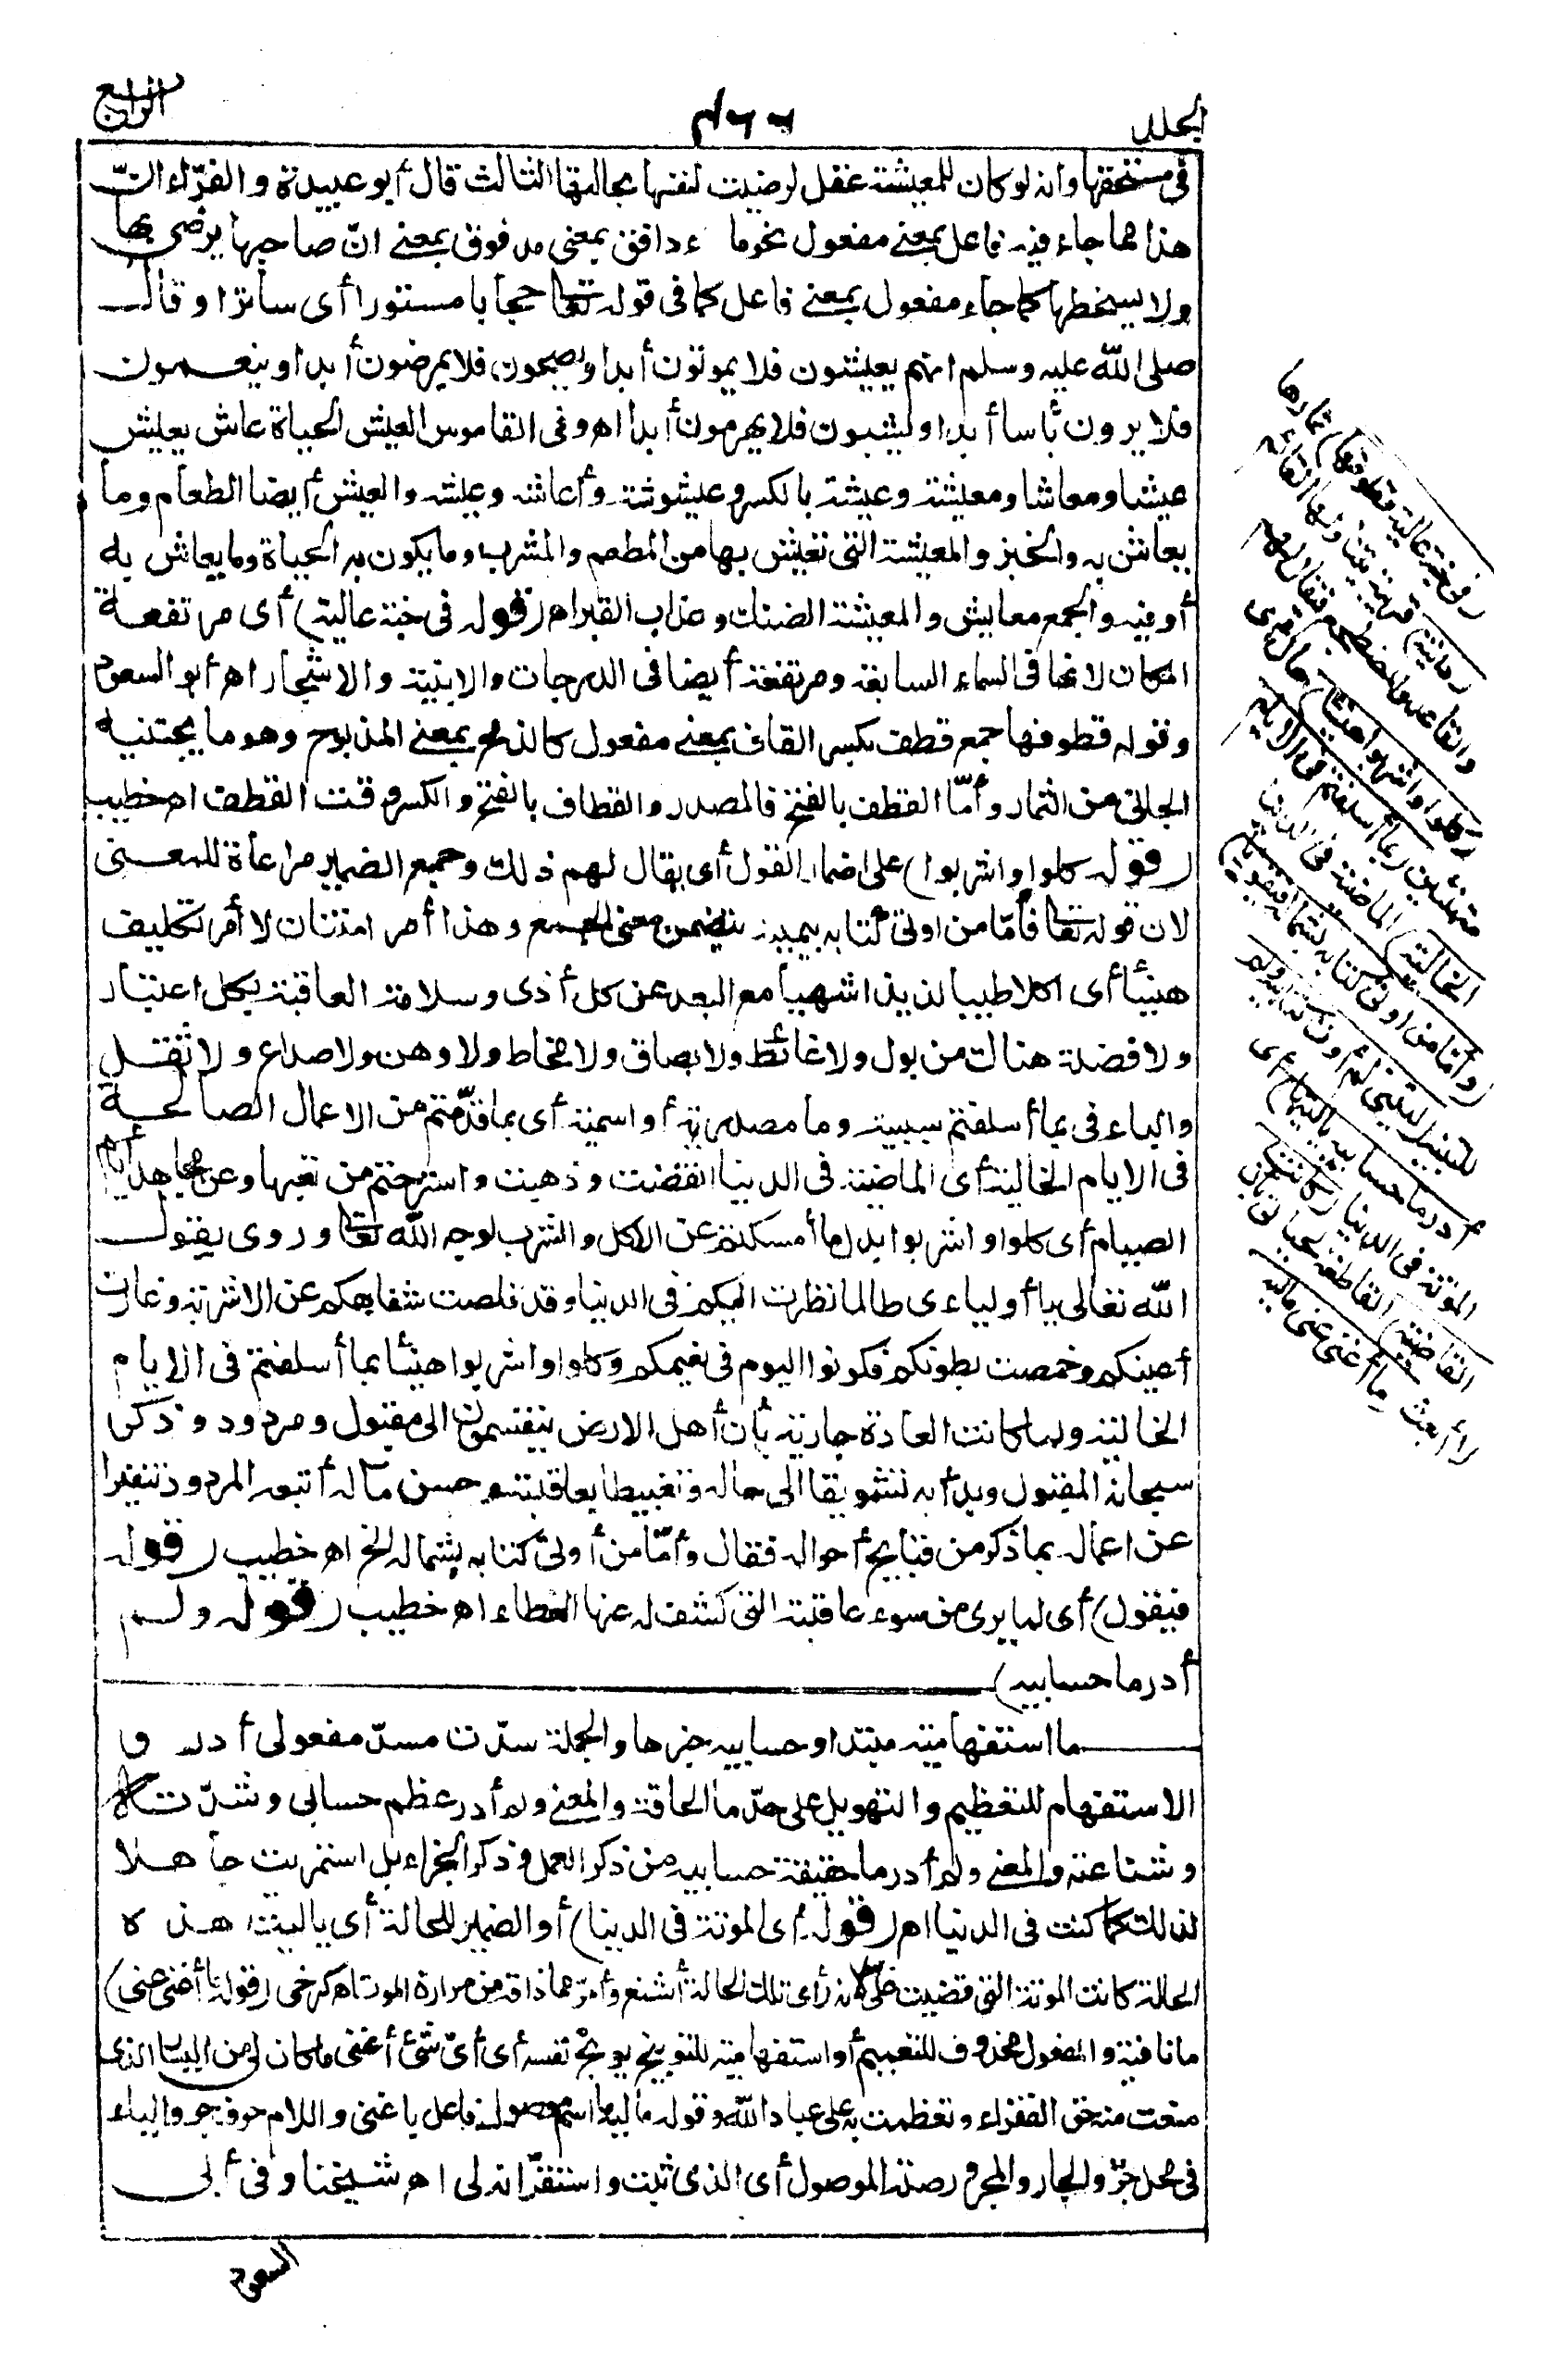 المجلد
٤٦٦
الرابع
فى مستحقها وانه لو كان للمعيشة عقل لرضيت لنفسها بحالتها الثالث قال أبو عبيدة والفرّاء انّ
هذا مما جاء فيه فاعل بمعنى مفعول نحو ماء دافق بمعنى مدفوق بمعنى انّ صاحبها يرضى بها
ولا يسخطها كما جاء مفعول بمعنى فاعل كما فى قوله تعا حجابا مستورا أى ساترا وقال
صلى الله عليه وسلم انهم يعيشون فلا يموتون أبدا ويصحون فلا يمرضون أبدا وينعمون
فلا يرون بأسا أبدا ويشبون فلا يهرمون أبدا اه وفى القاموس العيش الحياة عاش يعيش
عيشا ومعاشا ومعيشة وعيشة بالكسر وعيشوشة وأعاشه وعيشه والعيش أيضا الطعام وما
يعاش به والخبز والمعيشة التى تعيش بها من المطعم والمشرب وما يكون به الحياة وما يعاش به
أوفيه والجمع معايش والمعيشة الضنك وعذاب القبر اه (قوله فى جنة عالية) أى مرتفعة
المكان لانها فى السماء السابعة ومرتفعة أيضا فى الدرجات والابنية والاشجار اه أبو السعود
وقوله قطوفها جمع قطف بكسر القاف بمعنى مفعول كالذبح بمعنى المذبوح وهو ما يجتنيه
الجانى من الثمار وأمّا القطف بالفتح فالمصدر والقطاف بالفتح والكسر وقت القطف اه خطيب
(قوله كلوا واشربوا) على اضمار القول أى يقال لهم ذلك وجمع الضمير مراعاة للمعنى
لان قوله تعا فأمّا من اوتى كتابه بيمينه يتضمن معنى الجمع وهذا أمر امتنان لا أمر تكليف
هنيئا أى اكلا طيبا لذيذا شهيا مع البعد عن كل أذى وسلامة العاقبة بكل اعتبار
ولا فضلة هناك من بول ولا غائط ولا بصاق ولا مخاط ولا وهن ولا صداع ولا ثقل
والباء فى بما أسلفتم سببية وما مصدرية أو اسمية أى بما قدّمتم من الاعمال الصالحة
فى الايام الخالية أى الماضية فى الدنيا انقضت وذهبت واسترحتم من تعبها وعن مجاهد أيام
الصيام أى كلوا واشربوا بدل ما أمسكتم عن الاكل والشرب لوجه الله تعا وروى يقول
الله تعالى يا أولياءى طالما نظرت اليكم فى الدنيا وقد قلصت شفاهكم عن الاشربة وغارت
أعينكم وخمصت بطونكم فكونوا اليوم فى نعيمكم وكلوا واشربوا هنيئا بما أسلفتم فى الايام
الخالية ولما كانت العادة جارية بأن أهل الارض ينقسمون الى مقبول ومردود وذكر
سبحانه المقبول وبدأ به تشويقا الى حاله وتغبيطا بعاقبته وحسن مآله أتبعه المردود تنفيرا
عن اعماله بما ذكر من قبايح أحواله فقال وأمّا من أوتى كتابه بشماله الخ اه خطيب (قوله
فيقول) أى لما يرى من سوء عاقبته التى كشف له عنها الغطاء اه خطيب (قوله ولم
أدر ما حسابيه)
ما استفهامية مبتدا وحسابيه خبرها والجملة سدّت مسدّ مفعولى أدر و
الاستفهام للتعظيم والتهويل على حدّ ما الحاقة والمعنى ولم أدر عظم حسابى وشدّته
وشناعته والمعنى ولم أدر ما حقيقة حسابيه من ذكر العمل وذكر الجزاء بل استمريت جاهلا
لذلك كما كنت فى الدنيا اه (قوله أى الموتة فى الدنيا) أو الضمير للحالة أى يا ليت هذه
الحالة كانت الموتة التى قضيت علىّ لانه رأى تلك الحالة أشنع وأمرّ مما ذاقه من مرارة الموت اه كرخى (قوله ما أغنى عنى)
ما نافية والمفعول محذوف للتعميم أو استفهامية للتوبيخ يوبخ نفسه أى أىّ شئ أغنى ما كان لى من اليسار الذى
منعت منه حق الفقراء وتعظمت به على عباد الله وقوله ماليه ما اسم موصول فاعل باغنى واللام حرف جر والياء
فى محل جرّ والجار والمجرور صلة الموصول أى الذى ثبت واستقرّ انه لى اه شيخنا وفى أبى
السعود
(فى جنة عالية قطوفها) ثمارها
(دانية) قريبة يتناولها القائم
والقاعد والمضطجع فيقال لهم
(كلوا واشربوا هنيئا) حال أى
متهنئين (بما أسلفتم فى الايام
الخالية) الماضية فى الدنيا
(وأمّا من اوتى كتابه بشماله فيقول يا)
للتنبيه (ليتنى لم أوت كتابيه ولم
أدر ما حسابيه يا ليتها) أى
الموتة فى الدنيا (كانت
القاضية) القاطعة لحياتى بان
لا أبعث (ما أغنى عنى ماليه